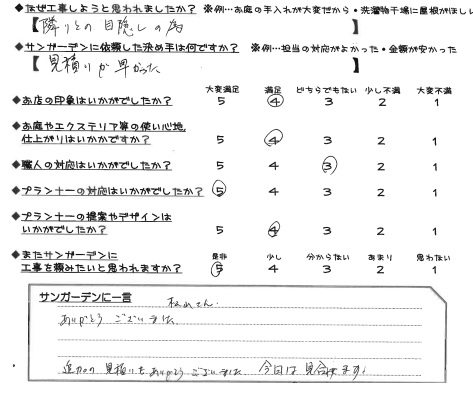 ◆なぜ工事しようと思われましたか？ ※例…お庭の手入れが大変だから・洗濯物干場に屋根がほしい
【 隣りとの目隠しの為 】
◆サンガーデンに依頼した決め手は何ですか？ ※例…担当の対応がよかった・金額が安かった
【 見積りが早かった 】
大変満足 満足 どちらでもない 少し不満 大変不満
◆お店の印象はいかがでしたか？ 5 4 3 2 1
◆お庭やエクステリア等の使い心地、
仕上がりはいかがですか？ 5 4 3 2 1
◆職人の対応はいかがでしたか？ 5 4 3 2 1
◆プランナーの対応はいかがでしたか？ 5 4 3 2 1
◆プランナーの提案やデザインは
いかがでしたか？ 5 4 3 2 1
是非 少し 分からない あまり 思わない
◆またサンガーデンに
工事を頼みたいと思われますか？ 5 4 3 2 1
サンガーデンに一言
さん.
ありがとうございました
追加の見積りもありがとうございました 今回は見合せます!